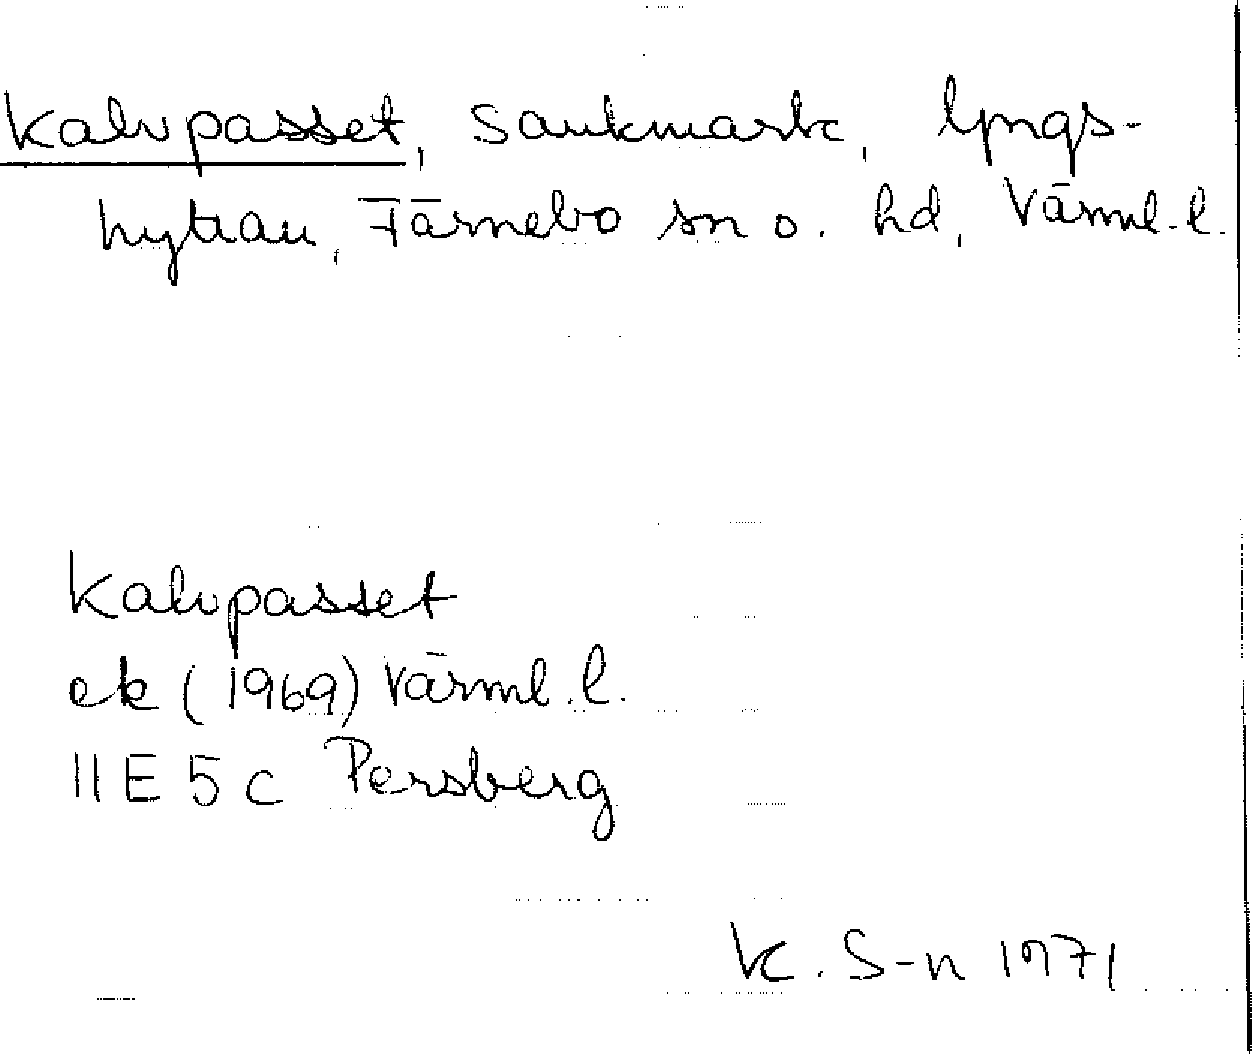 Kalvpasset, Sankmark, lyngs-
hyttan, Färnebo sn o. hd, Värml. l.
Kalvpasset
ek (1969) Värml. l.
11E 5c Persberg
K. S-n 1971